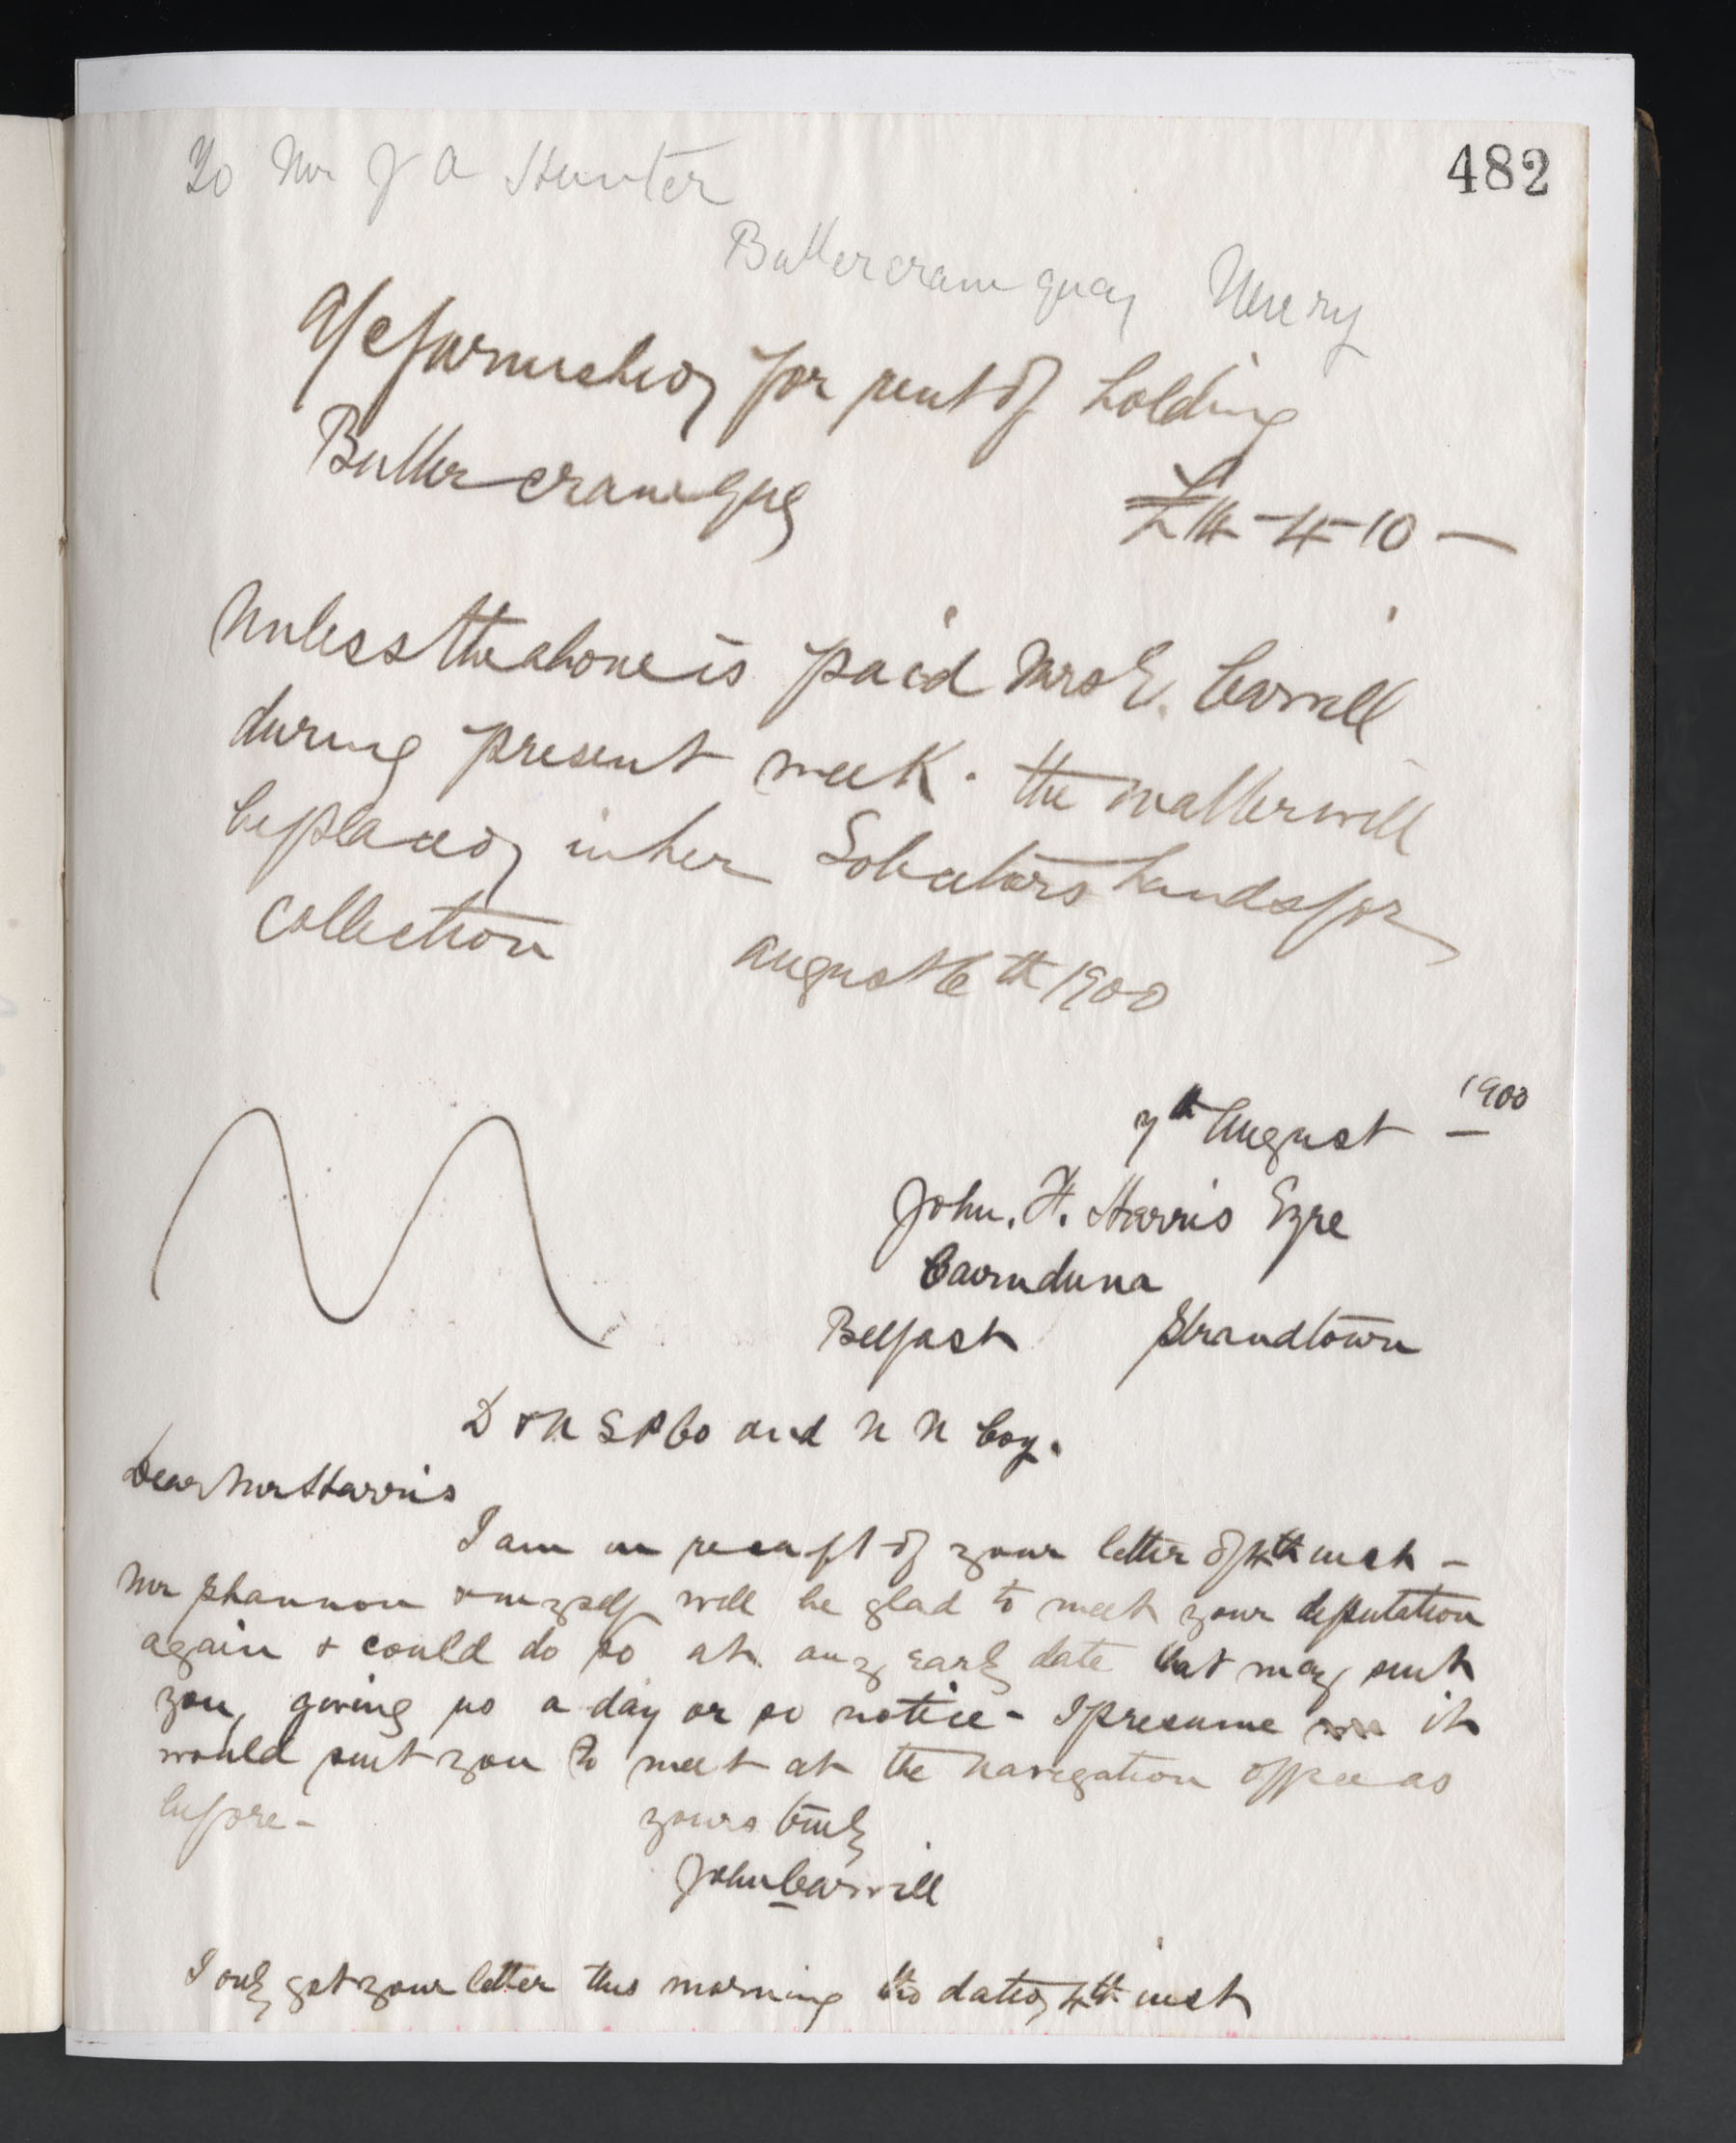 482
To Mr J A Hunter
Buttercrane quay Newry
A/c furnished for rent of holding
Butter crane Quay
£14-4-10 —
Unless the above is paid Mrs E. Carvill
during present week. the matter will
be placed in her Solicitors hands for
Collection August 6th 1900
7th August 1900
John. H. Harris Esqre
Cairnduna
Belfast Strandtown
D & N S P Co and N N Coy.
Dear Mr Harris
I am in receipt of your letter of 4th inst -
Mr Shannon & myself will be glad to meet your deputation
again & could do so at any early date that may suit
you, giving us a day or so notice - I presume it
would suit you to meet at the Navigation office as
before -
yours truly
John Carvill
I only got your letter this morning tho dated 4th inst